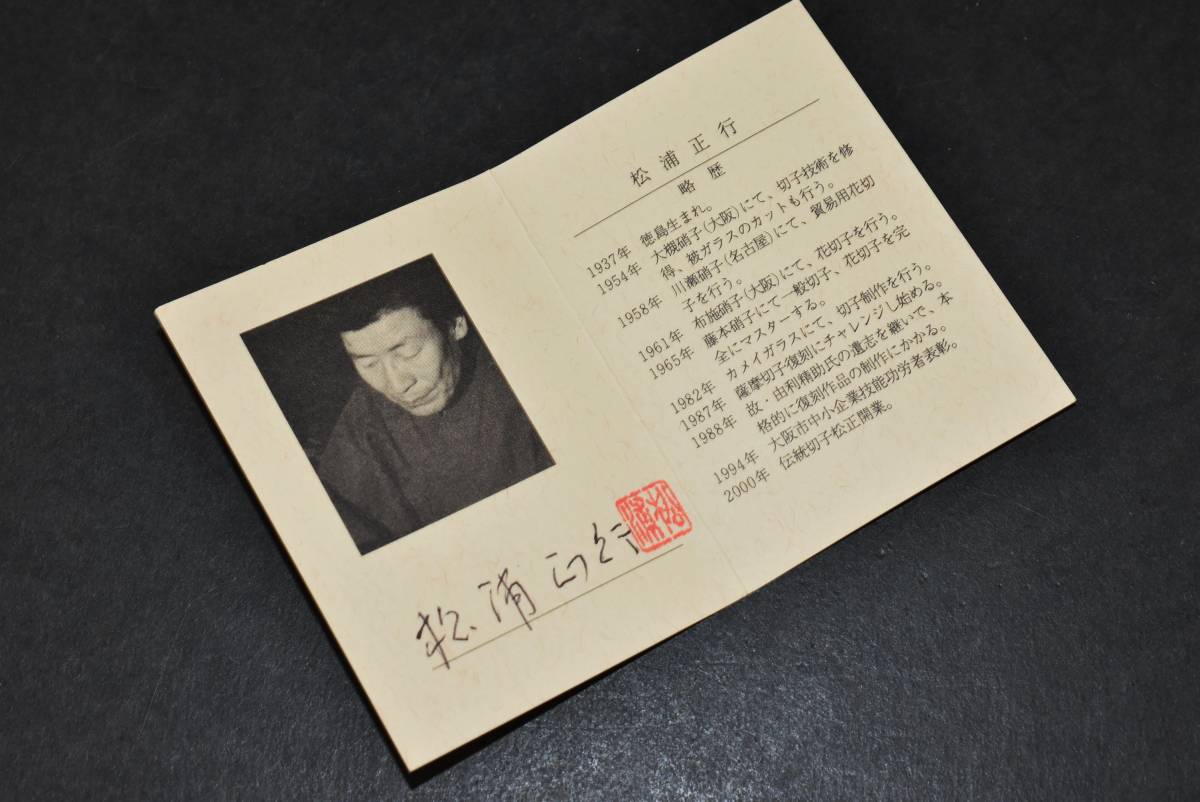 松浦正行
略歴
1937年 徳島生まれ。
1954年 大槻硝子(大阪)にて、切子技術を修
得、被ガラスのカットも行う。
1958年 川瀬硝子(名古屋)にて、貿易用花切
子を行う。
1961年 布施硝子(大阪)にて、花切子を行う。
1965年 藤本硝子にて一般切子、花切子を完
全にマスターする。
1982年 カメイガラスにて、切子制作を行う。
1987年 薩摩切子復刻にチャレンジし始める。
1988年 故・由利精助氏の遺志を継いで、本
格的に復刻作品の制作にかかる。
1994年 大阪市中小企業技能功労者表彰。
2000年 伝統切子松正開業。
松浦正行